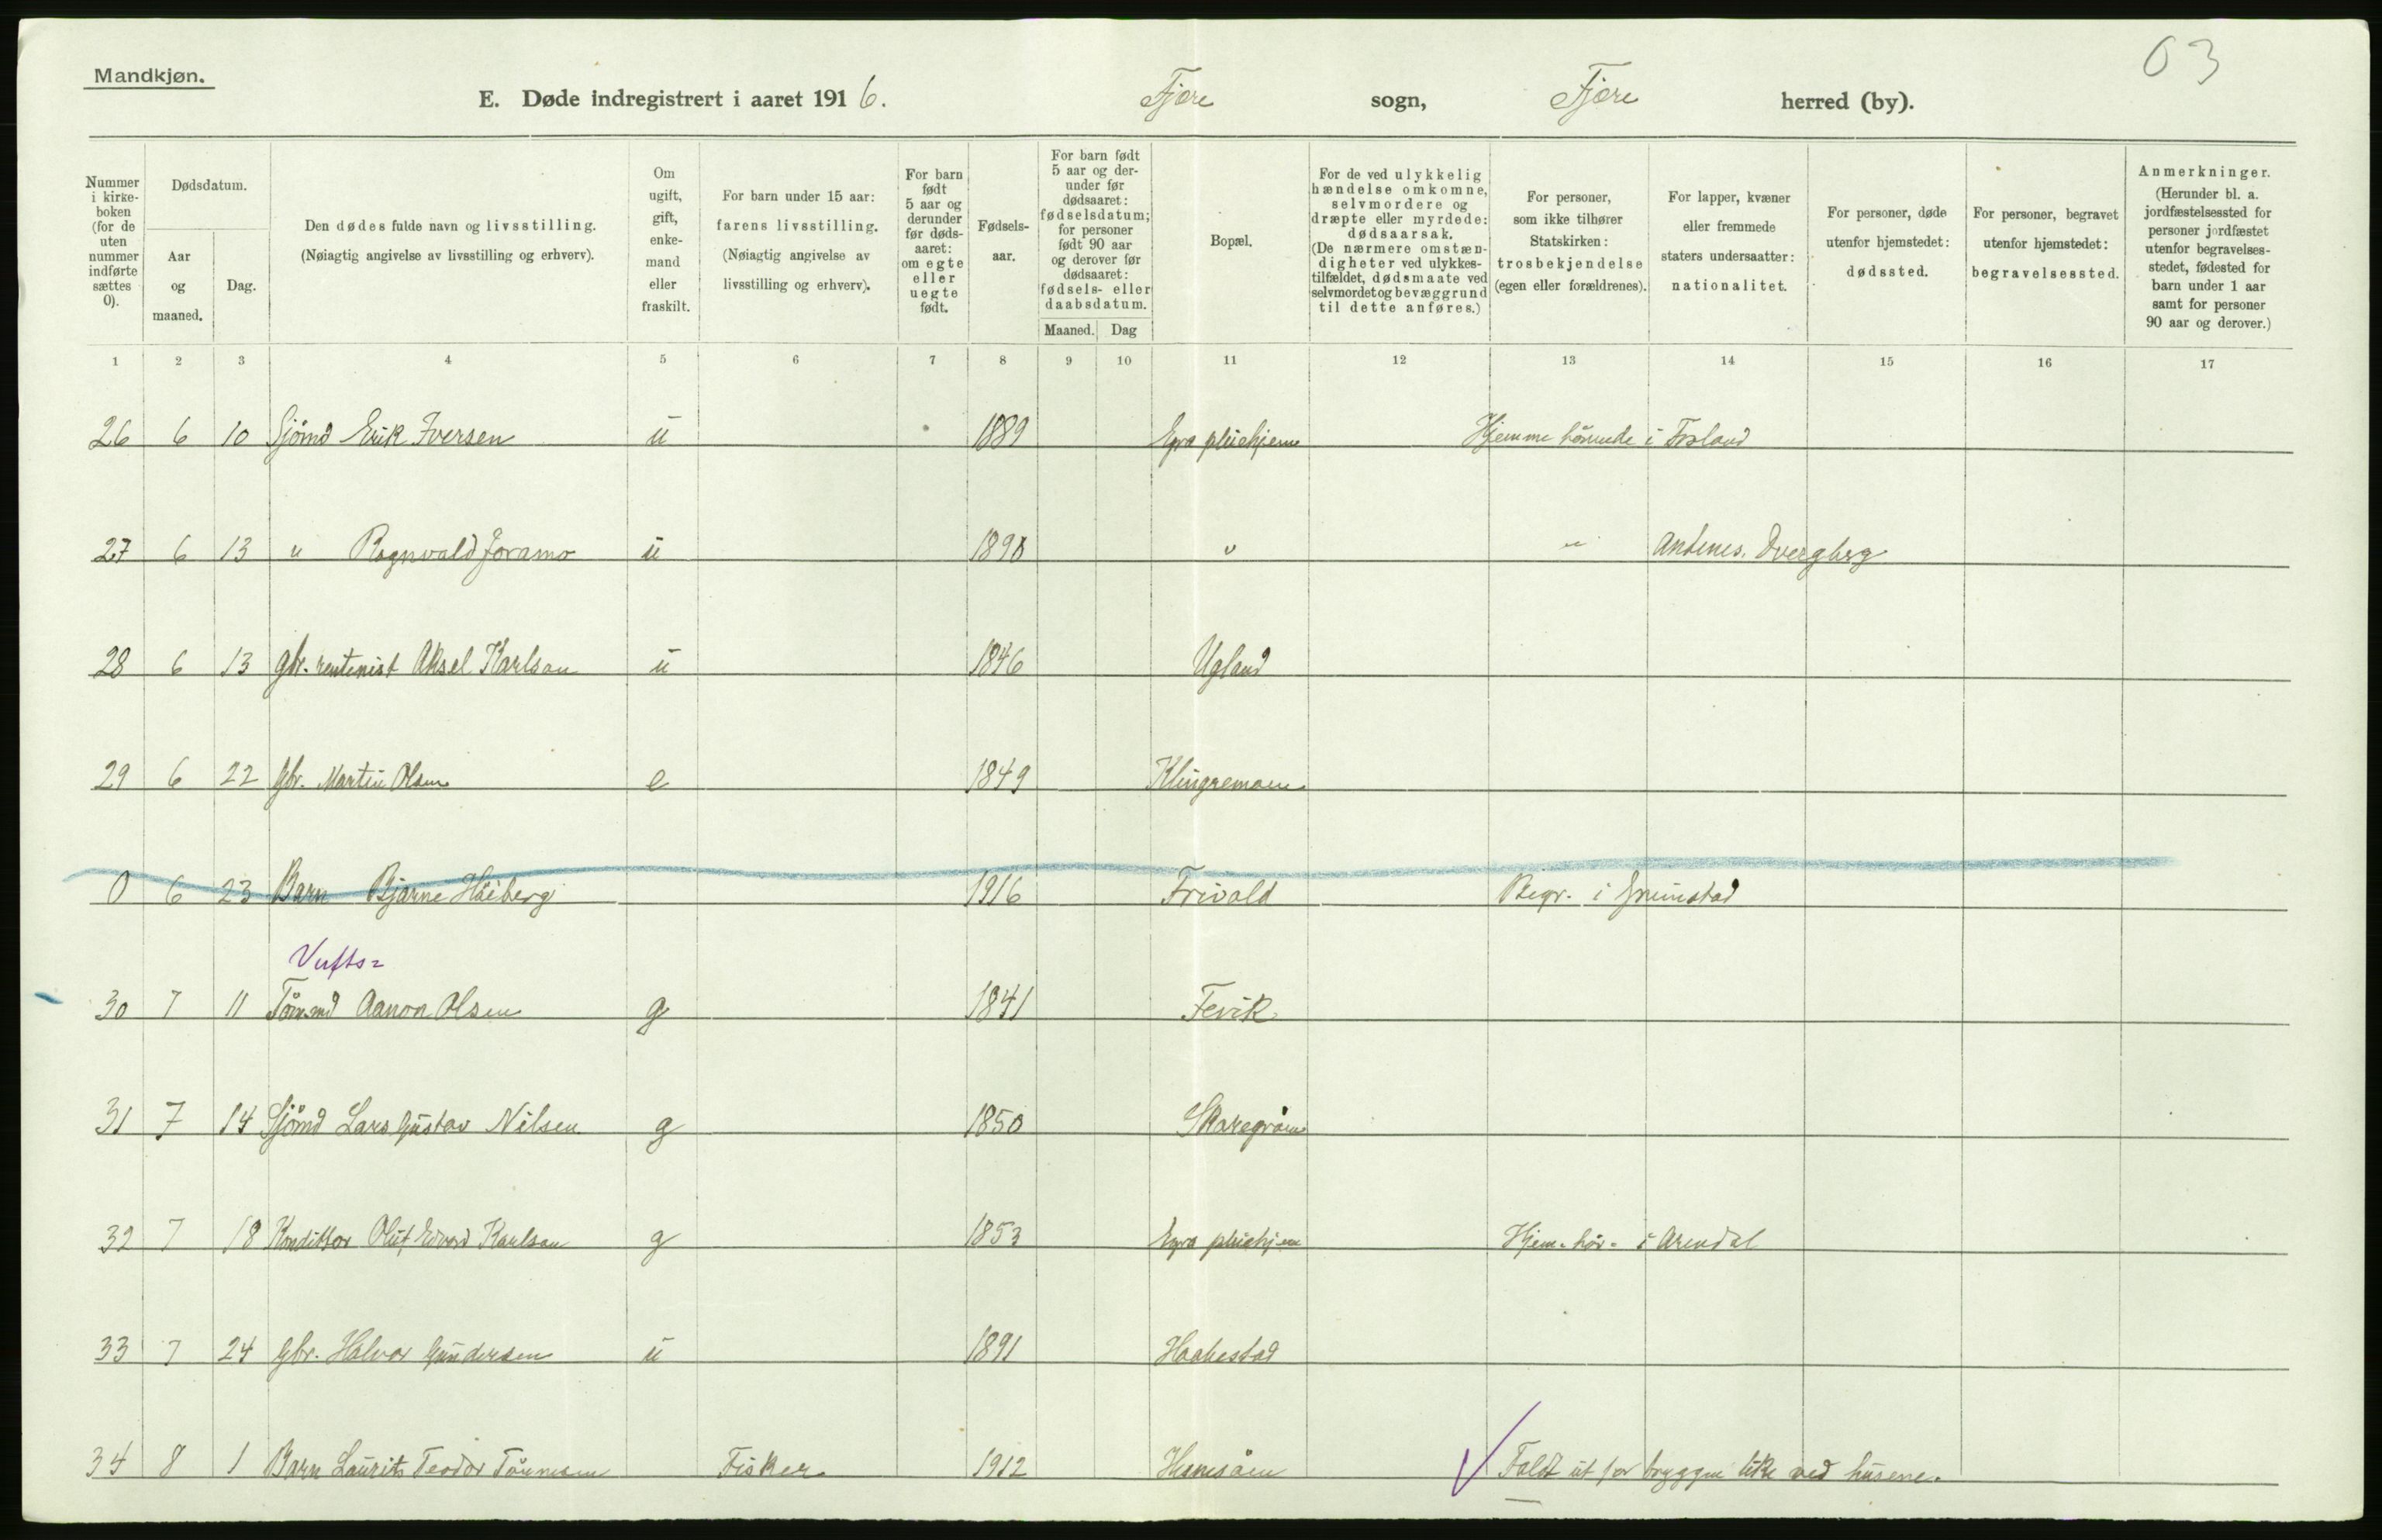 03
Mandkjøn.
E. Døde indregistrert i aaret 1916. Fjære sogn, Fjære herred (by).
Nummer i kirke-boken (for de uten nummer indførte sættes 0).
Dødsdatum.
Aar og maaned.
Dag.
Den dødes fulde navn og livsstilling. (Nøiagtig angivelse av livsstilling og erhverv).
Om ugift, gift, enke-mand eller fraskilt.
For barn under 15 aar: farens livsstilling. (Nøiagtig angivelse av livsstilling og erhverv).
For barn født 5 aar og derunder før døds-aaret: om egte eller uegte født.
Fødsels-aar.
For barn født 5 aar og der-under før dødsaaret: fødselsdatum; for personer født 90 aar og derover før dødsaaret: fødsels- eller daabsdatum.
Maaned. Dag
Bopæl.
For de ved ulykkelig hændelse omkomne, selvmordere og dræpte eller myrdede: dødsaarsak. (De nærmere omstæn-digheter ved ulykkes-tilfældet, dødsmaate ved selvmordet og bevæggrund til dette anføres.)
For personer, som ikke tilhører Statskirken: trosbekjendelse (egen eller forældrenes).
For lapper, kvæner eller fremmede staters undersaatter: nationalitet.
For personer, døde utenfor hjemstedet: dødssted.
For personer, begravet utenfor hjemstedet: begravelsessted.
Anmerkninger. (Herunder bl. a. jordfæstelsessted for personer jordfæstet utenfor begravelses-stedet, fødested for barn under 1 aar samt for personer 90 aar og derover.)
1 2 3 4 5 6 7 8 9 10 11 12 13 14 15 16 17
26 6 10 Sjömd Erik Iversen u 1889 pleiehjem Hjemme hörende i
27 6 13 " Ragnvald Joramo u 1890 " " Andenes. Dvergherg
28 6 13 Gbr. rentenist Aksel Karlsen u 1846 Ugland
29 6 22 Gbr. Martin Olsen e 1849 Klingremoen
0 6 23 Barn Bjarne Höiberg 1916 Frivold Begr. i Grimstad
Verfts=
30 7 11 Tömmd Aanon Olsen g 1841 Fevik
31 7 14 Sjömd Lars Gustav Nilsen g 1850 Skaregröm
32 7 18 Konditor Oluf Edvard Karlsen g 1853 pleiehjem Hjem-hör- i Arendal
33 7 24 Gbr. Halvor Gundersen u 1891
34 8 1 Barn Laurits Teodor Tönnesen Fisker 1912 Hesnesöen Faldt ut for bryggen like ved husene.